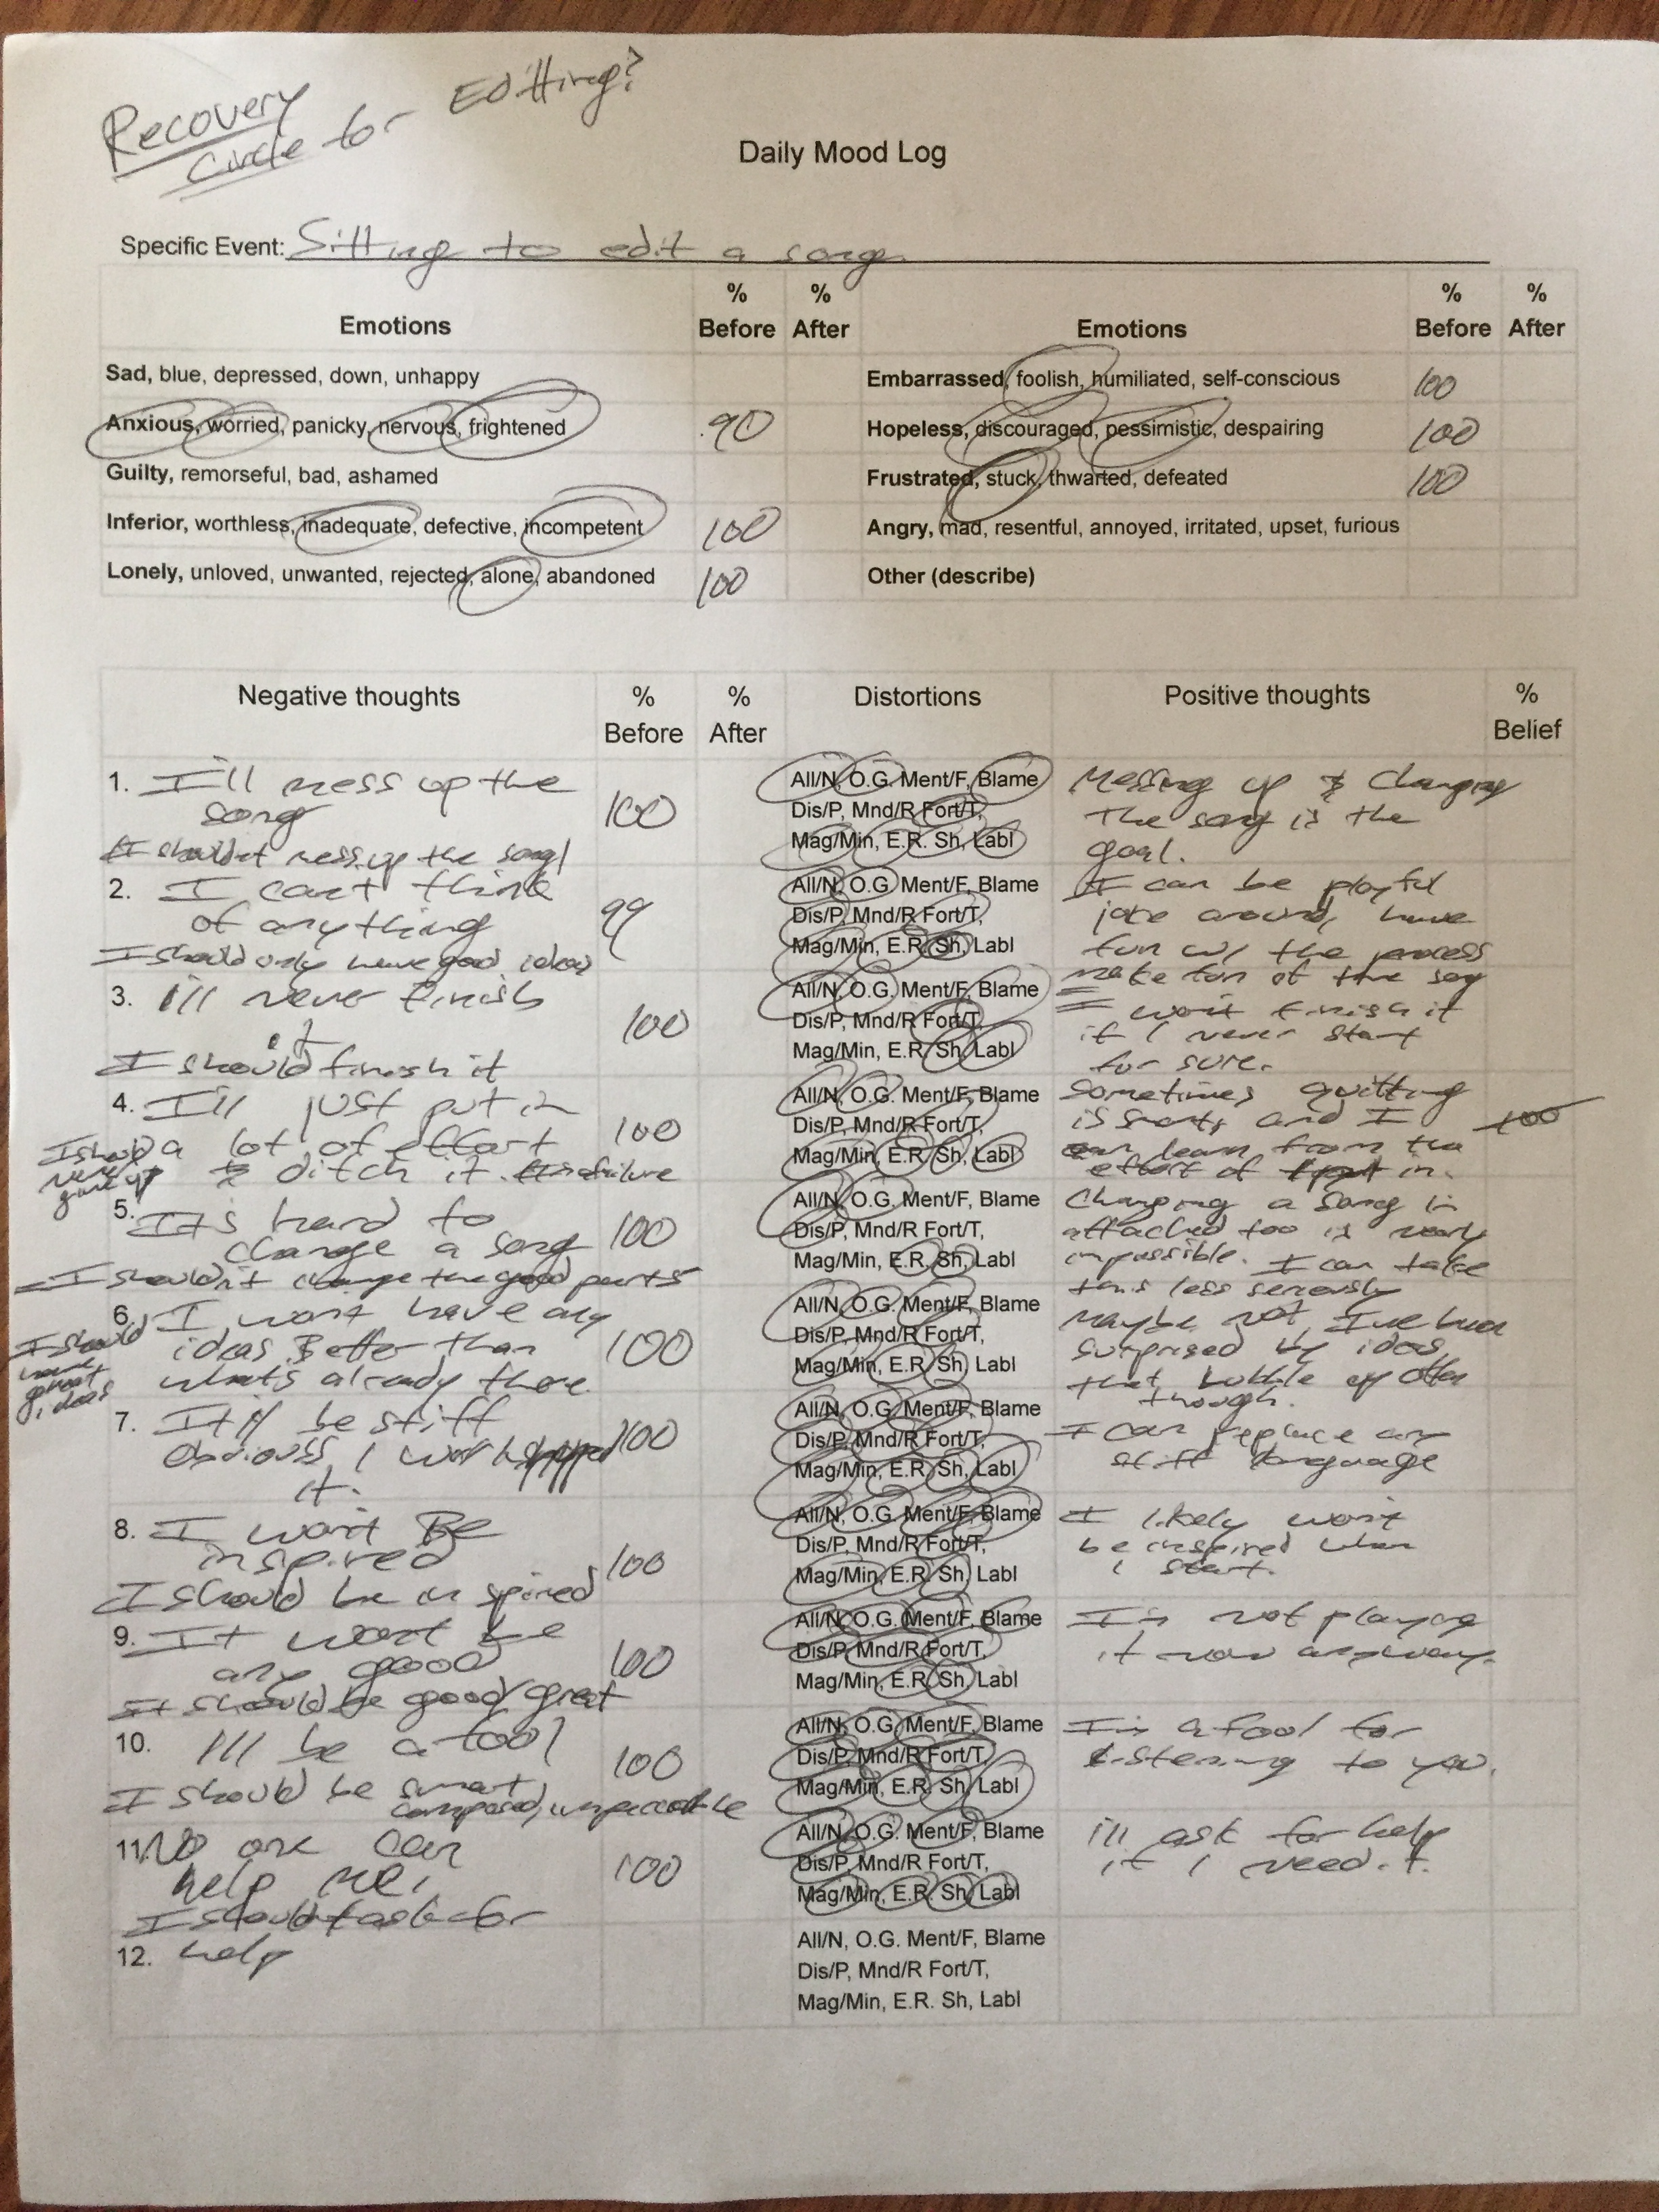 Recovery
Circle for Editting?
Daily Mood Log
Specific Event: Sitting to edit a song
Emotions % Before % After Emotions % Before % After
Sad, blue, depressed, down, unhappy
Embarrassed, foolish, humiliated, self-conscious 100
Anxious, worried, panicky, nervous, frightened 90
Hopeless, discouraged, pessimistic, despairing 100
Guilty, remorseful, bad, ashamed
Frustrated, stuck, thwarted, defeated 100
Inferior, worthless, inadequate, defective, incompetent 100
Angry, mad, resentful, annoyed, irritated, upset, furious
Lonely, unloved, unwanted, rejected, alone, abandoned 100
Other (describe)
Negative thoughts % Before % After Distortions Positive thoughts % Belief
1. I'll mess up the
song
100
I shouldn't mess up the song
All/N, O.G. Ment/F, Blame
Dis/P, Mnd/R Fort/T,
Mag/Min, E.R. Sh, Labl
Messing up & changing
the song is the
goal.
2. I can't think
of anything
99
I should only have good ideas
All/N, O.G. Ment/F, Blame
Dis/P, Mnd/R Fort/T,
Mag/Min, E.R. Sh, Labl
I can be playful
joke around, have
fun w/ the process
make fun of the song
3. I'll never finish
it
100
I should finish it
All/N, O.G. Ment/F, Blame
Dis/P, Mnd/R Fort/T,
Mag/Min, E.R. Sh, Labl
I won't finish it
if I never start
for sure.
4. I'll just put in
a lot of effort
& ditch it.
100
I should
never
give up
All/N, O.G. Ment/F, Blame
Dis/P, Mnd/R Fort/T,
Mag/Min, E.R. Sh, Labl
Sometimes quitting
is smart, and I
can learn from the
effort I put in.
100
5. It's hard to
change a song
100
I shouldn't change the good parts
All/N, O.G. Ment/F, Blame
Dis/P, Mnd/R Fort/T,
Mag/Min, E.R. Sh, Labl
Changing a song im
attached too is nearly
impossible. I can take
this less seriously
6. I won't have any
ideas Better than
what's already there.
100
I should
have
great
ideas
All/N, O.G. Ment/F, Blame
Dis/P, Mnd/R Fort/T,
Mag/Min, E.R. Sh, Labl
Maybe not, I've been
surprised by ideas
that bubble up often
though.
7. It'll be stiff
obvious I workshopped
it.
100
All/N, O.G. Ment/F, Blame
Dis/P, Mnd/R Fort/T,
Mag/Min, E.R. Sh, Labl
I can replace any
stiff language
8. I won't Be
inspired
100
I should be inspired
All/N, O.G. Ment/F, Blame
Dis/P, Mnd/R Fort/T,
Mag/Min, E.R. Sh, Labl
I likely won't
be inspired when
I start.
9. It won't be
any good
100
It should be good/great
All/N, O.G. Ment/F, Blame
Dis/P, Mnd/R Fort/T,
Mag/Min, E.R. Sh, Labl
I'm not playing
it now anyway.
10. I'll be a fool
100
I should be smart,
composed, impeccable
All/N, O.G. Ment/F, Blame
Dis/P, Mnd/R Fort/T,
Mag/Min, E.R. Sh, Labl
I'm a fool for
listening to you.
11. No one can
help me.
100
I shouldn't ask for
help
All/N, O.G. Ment/F, Blame
Dis/P, Mnd/R Fort/T,
Mag/Min, E.R. Sh, Labl
i'll ask for help
if I need it.
12.
All/N, O.G. Ment/F, Blame
Dis/P, Mnd/R Fort/T,
Mag/Min, E.R. Sh, Labl